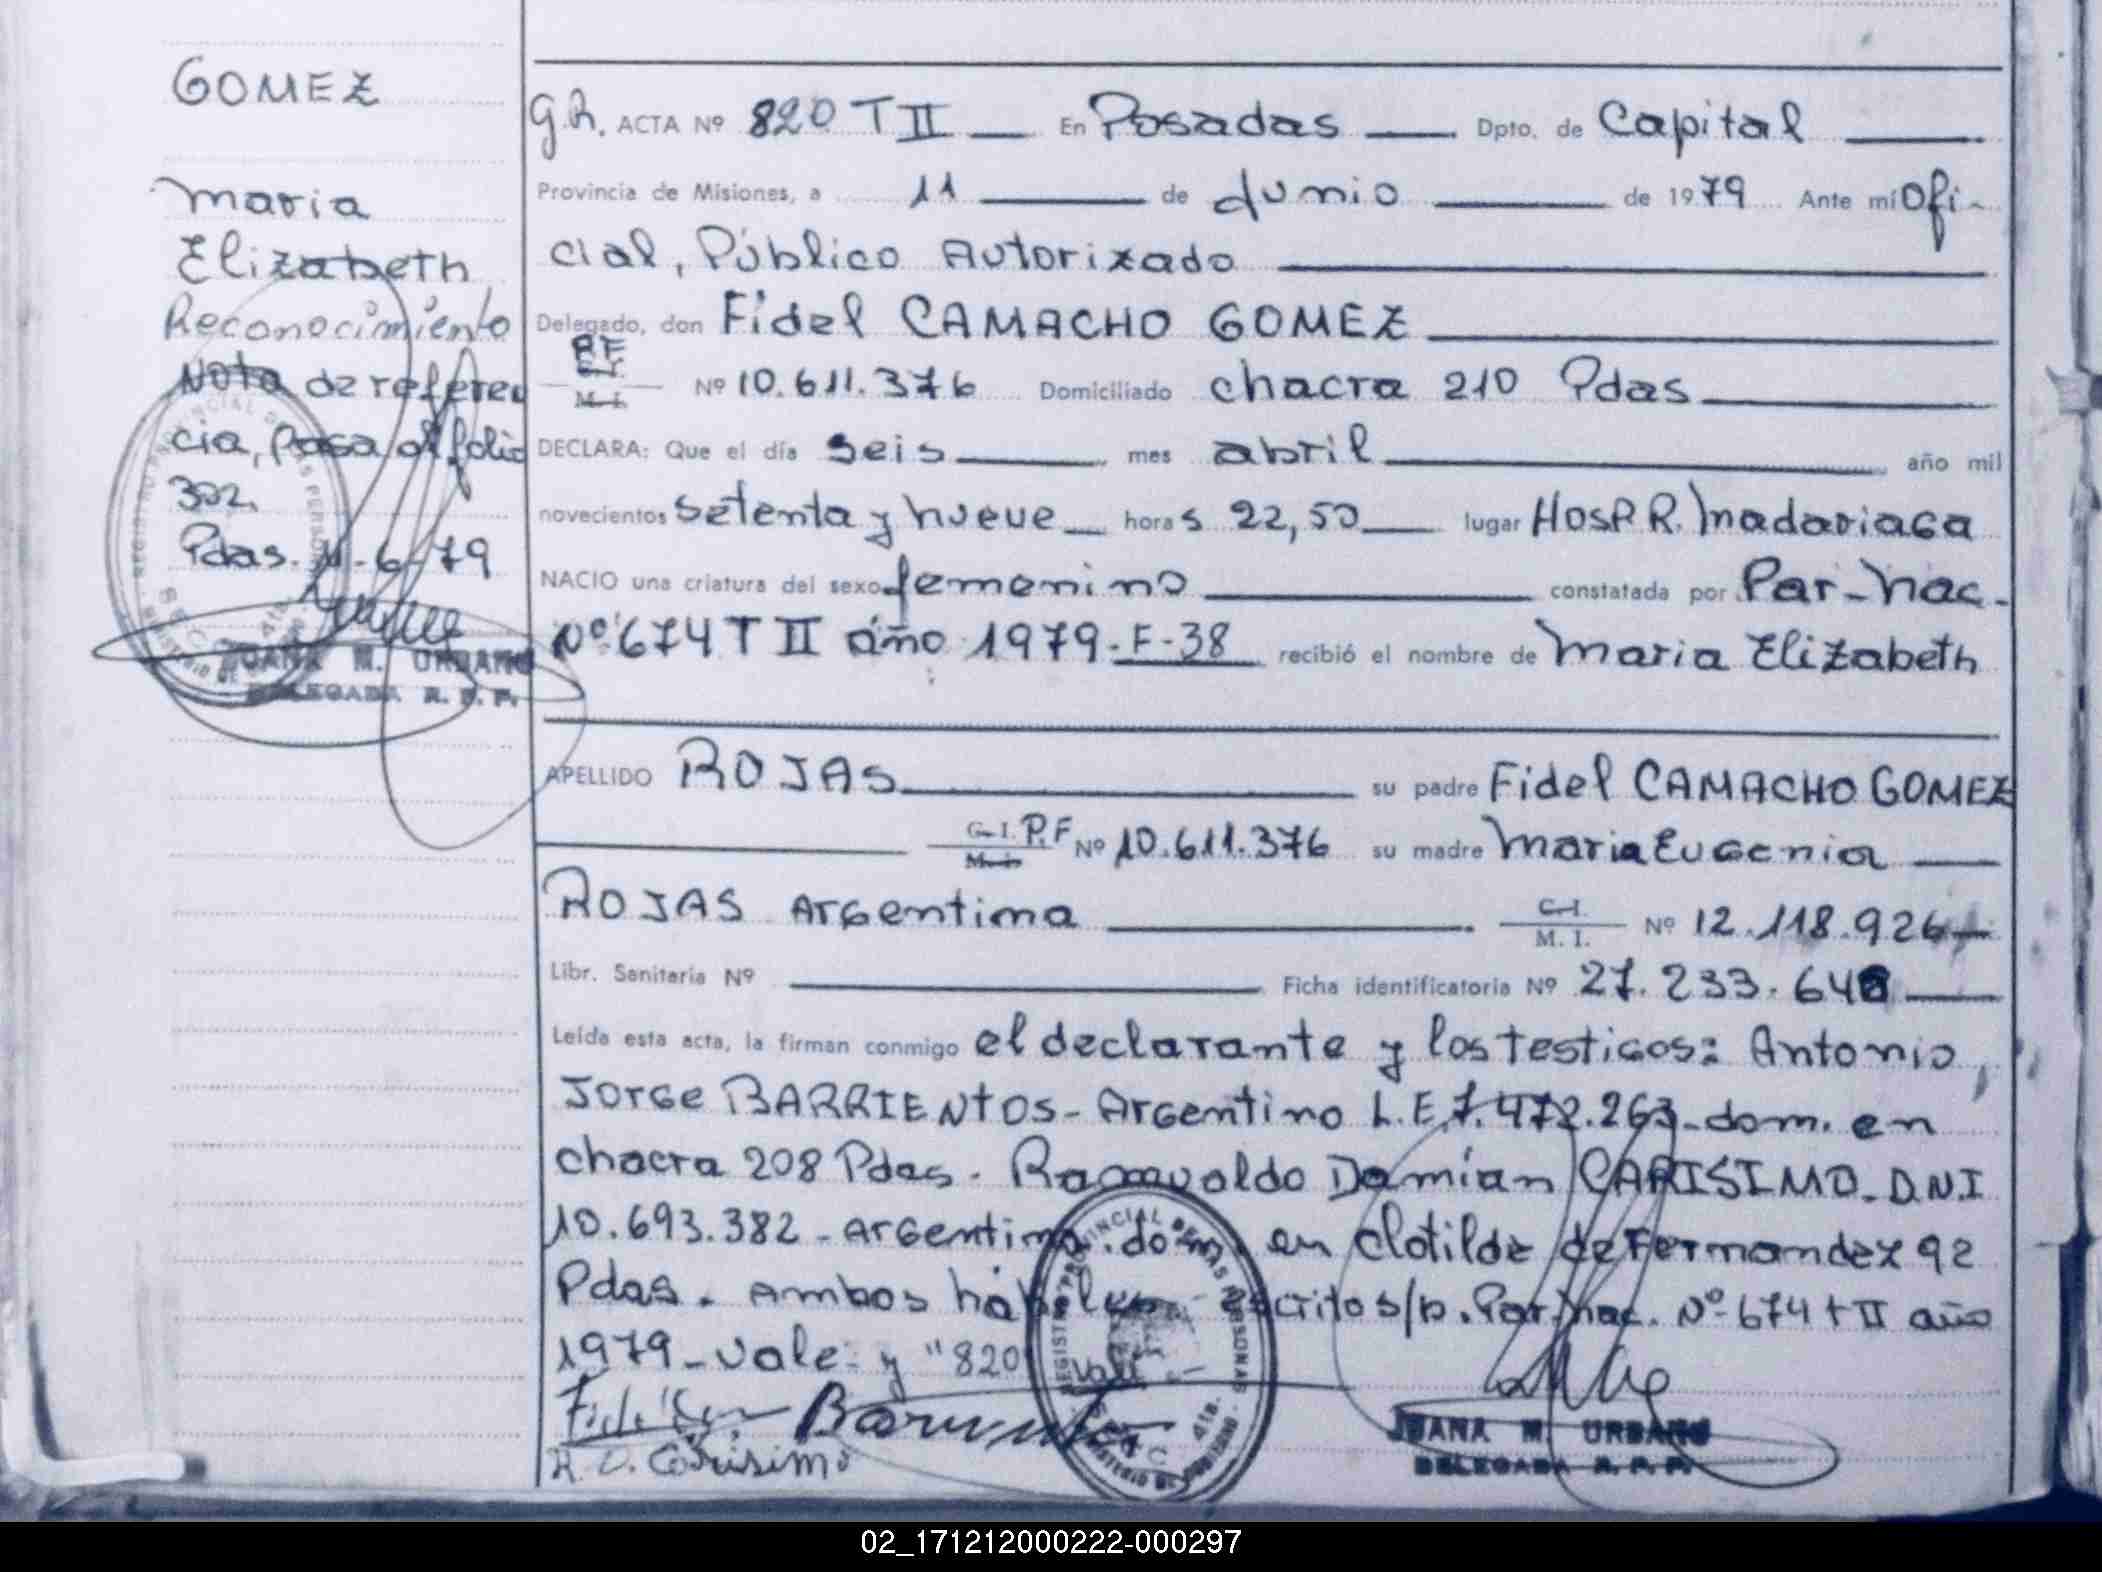 GOMEZ
Maria
Elizabeth
Reconocimiento
Nota de referen
cia, pasa al folio
302.
Pdas. 11-6-79
JUANA M. URBANO
DELEGADA R. P. P.
G.R. ACTA Nº 820 T II En Posadas Dpto. de Capital
Provincia de Misiones, a 11 de Junio de 1979 Ante mí Ofi-
cial, Público Autorizado
Delegado, don Fidel CAMACHO GOMEZ
P.F M. I. Nº 10.611.376 Domiciliado chacra 210 Pdas
DECLARA: Que el día seis mes abril año mil
novecientos setenta y nueve horas 22,50 lugar Hosp R. Madariaga
NACIO una criatura del sexo femenino constatada por Par-Nac.
Nº 674 T II año 1979-F-38 recibió el nombre de Maria Elizabeth
APELLIDO ROJAS su padre Fidel CAMACHO GOMEZ
C. I. P.F M. I. Nº 10.611.376 su madre Maria Eugenia
ROJAS Argentina C. I. M. I. Nº 12.118.926
Libr. Sanitaria Nº Ficha identificatoria Nº 27.233.648
Leída esta acta, la firman conmigo el declarante y los testigos: Antonio
Jorge BARRIENtOS- Argentino L.E. 7.472.263-dom. en
chacra 208 Pdas. Romualdo Damián CARISIMO-D.N.I
10.693.382-Argentino.dom. en Clotilde de Fernandez 92
Pdas. Ambos hábiles escrito s/b. Par-Nac. Nº 674 t II año
1979-Vale: y "820" Vale
Barrientos
R. D. Carisimo
REGISTRO PROVINCIAL DE LAS PERSONAS
SECC 4ta.
MINISTERIO DE GOBIERNO
JUANA M. URBANO
DELEGADA R. P. P.
02_171212000222-000297